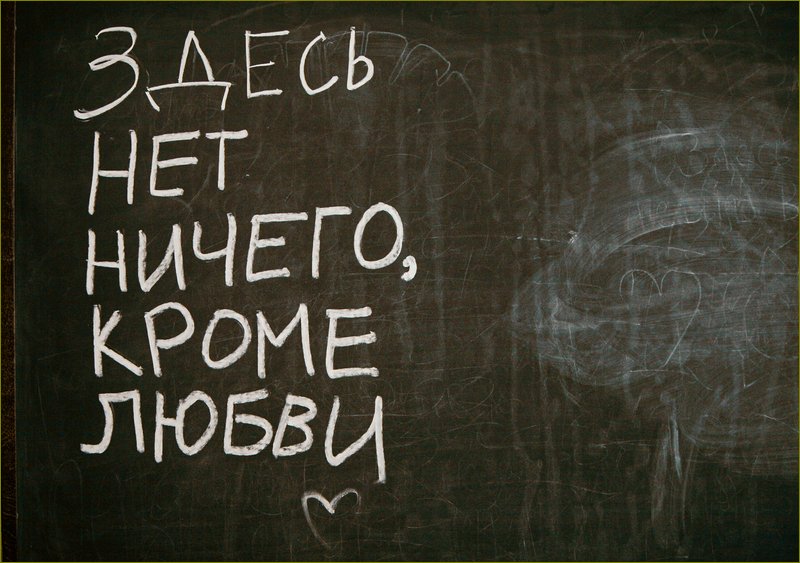 ЗДЕСЬ
НЕТ
НИЧЕГО,
КРОМЕ
ЛЮБВИ